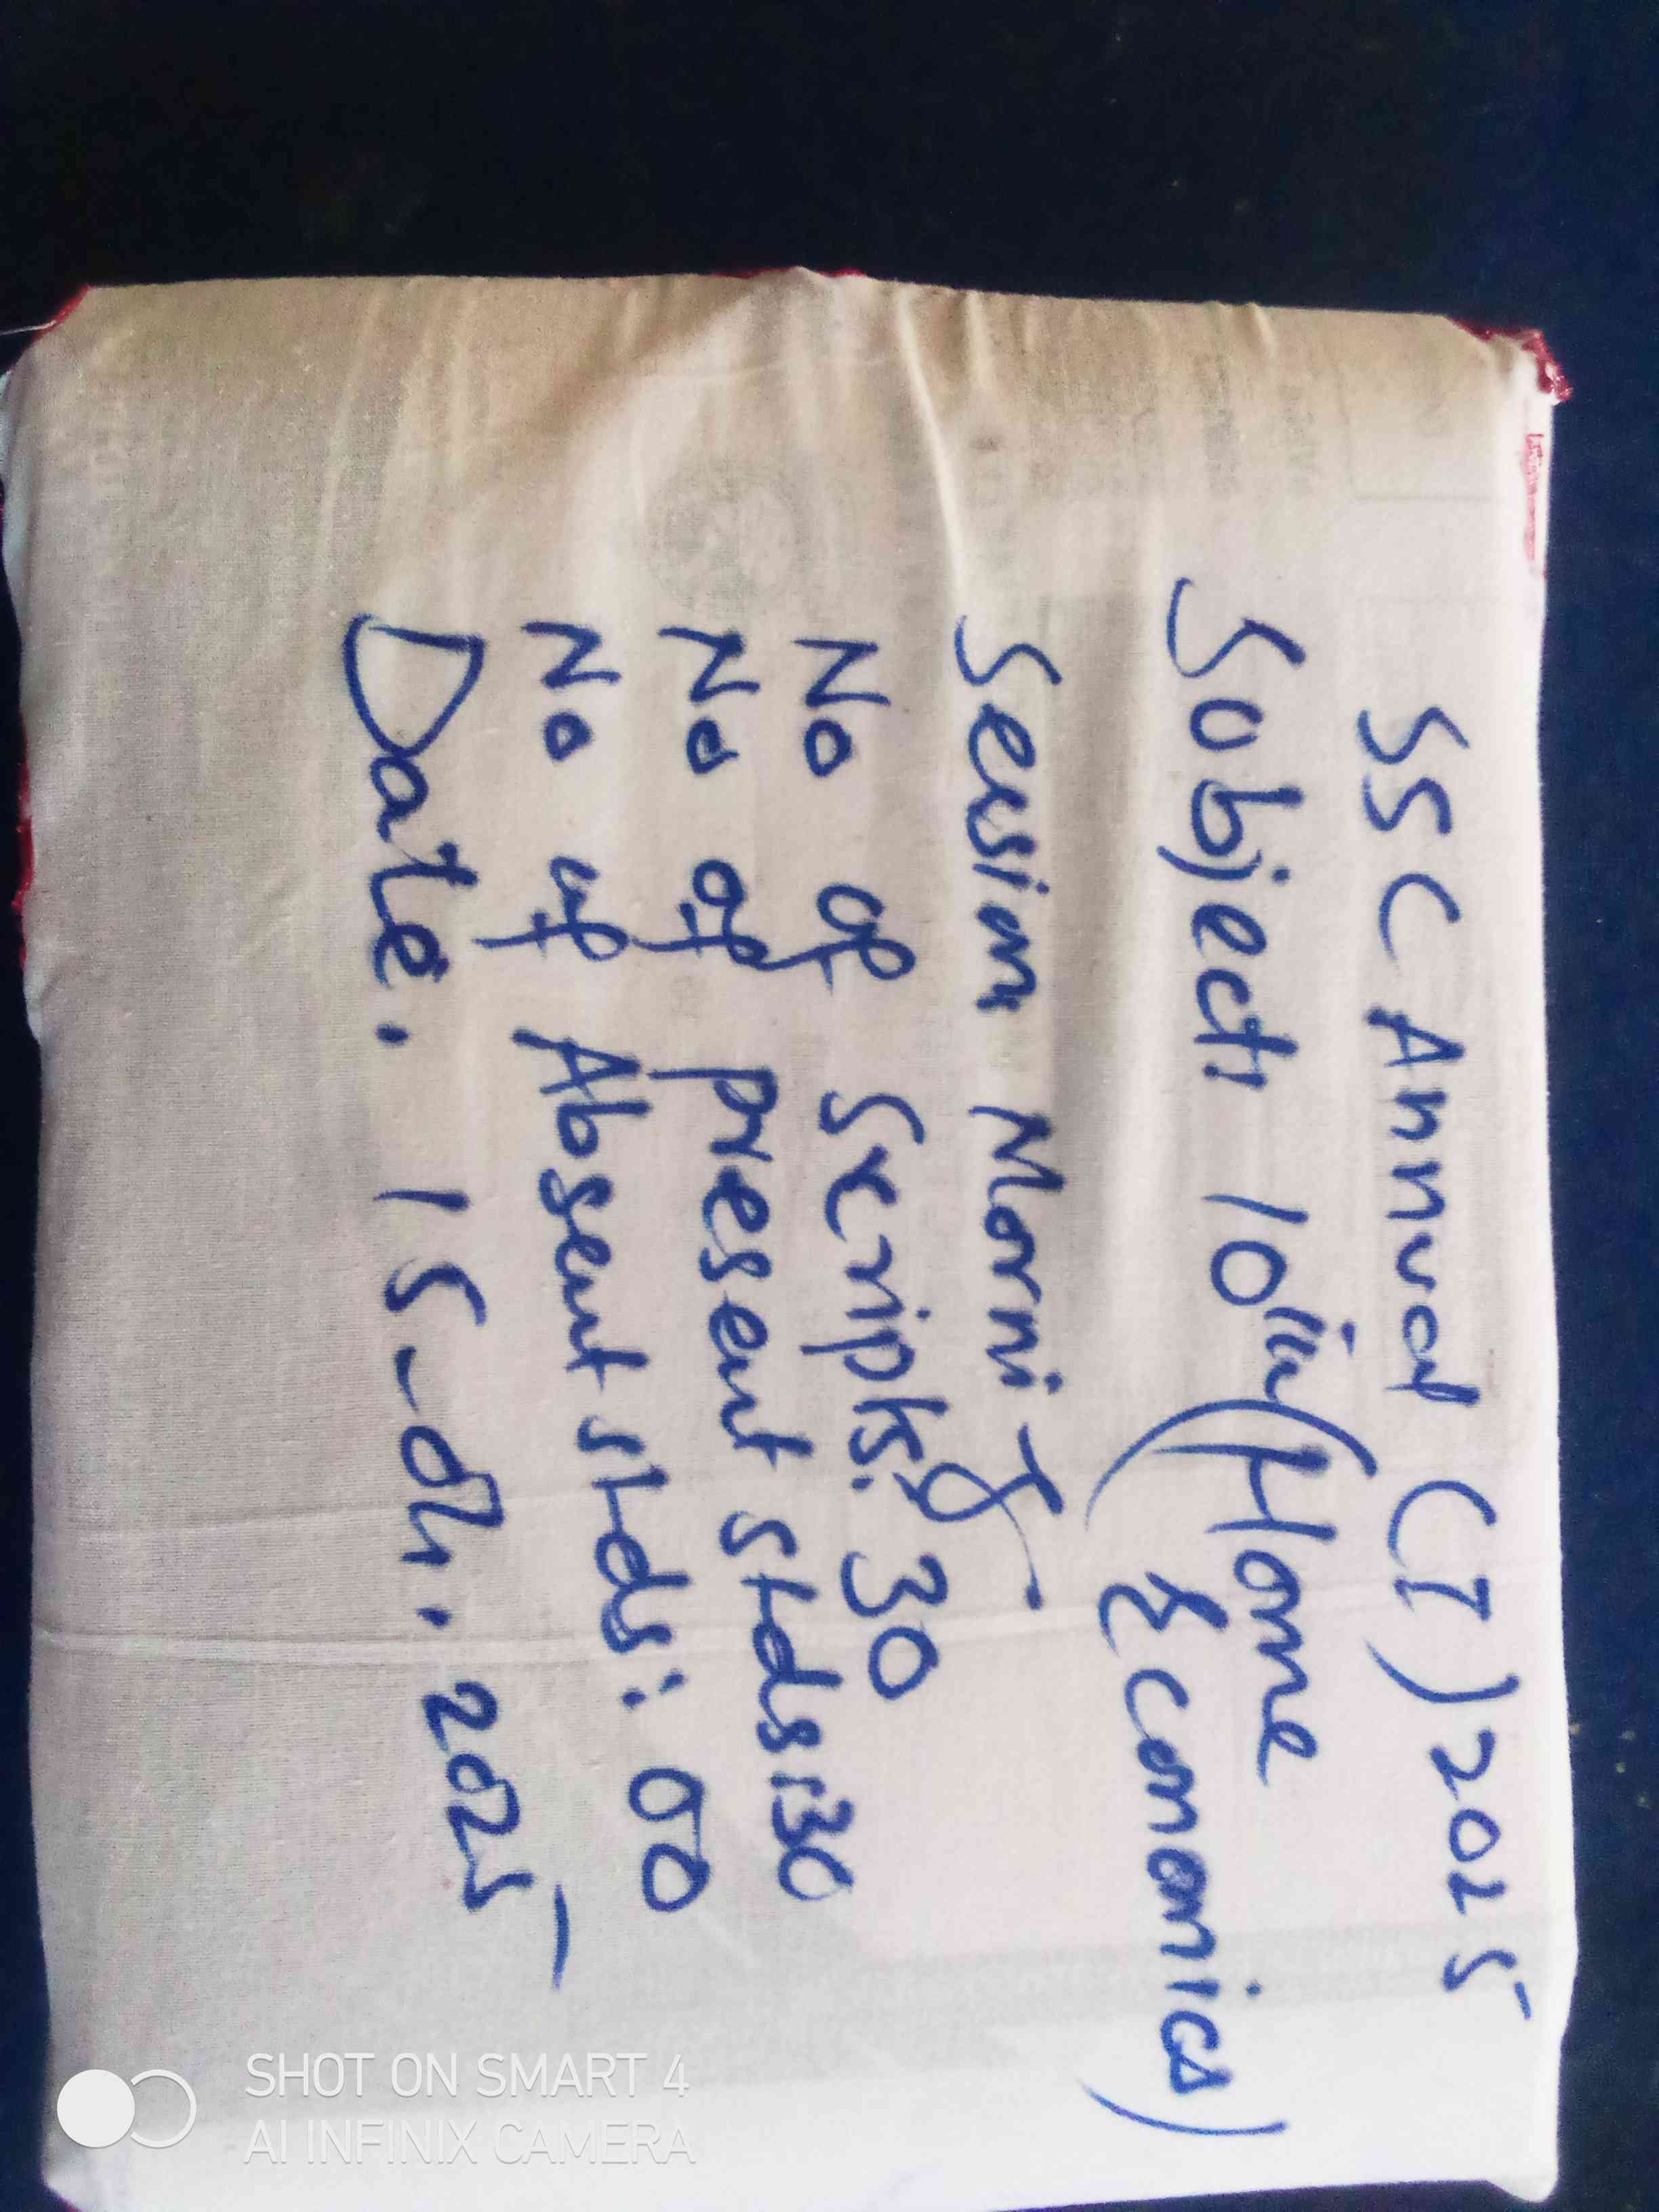 SSC Annual (I) 2025
Sobject: 10th (Home
Economics)
Session Morning
No of Scripts: 30
No of present stds: 30
No of Absent stds: 00
Date: 15-04-2025
SHOT ON SMART 4
AI INFINIX CAMERA